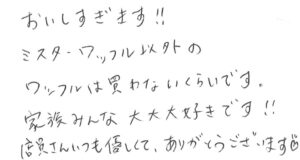 おいしすぎます!!
ミスターワッフル以外の
ワッフルは買わないくらいです。
家族みんな大大大好きです!!
店員さんいつも優しくて、ありがとうございます